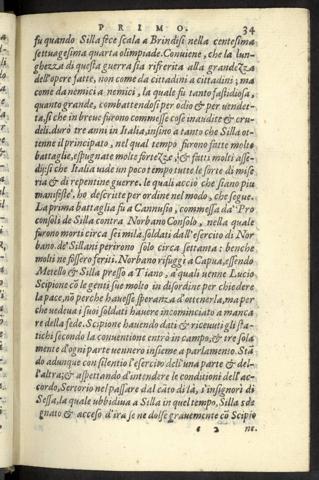 PRIMO. 34
fu quando Silla fece scala a Brindisi nella centesima
settuagesima quarta olimpiade. Conuiene, che la lun
ghezza di questa guerra sia riferita alla grandezza
dell'opere fatte, non come da cittadini a cittadini; ma
come da nemici a nemici, la quale fu tanto fastidiosa,
quanto grande, combattendosi per odio & per uendet-
ta, si che in breue furono commesse cose inaudite & cru
deli. durò tre anni in Italia, insino a tanto che Silla ot-
tenne il principato, nel qual tempo furono fatte molte
battaglie, espugnate molte fortezze, & fatti molti asse-
dij: si che Italia uide un poco tempo tutte le sorte di mise
ria & di repentine guerre. le quali acciò che siano piu
manifeste, ho descritte per ordine nel modo, che segue.
La prima battaglia fu a Cannusio, commessa da' Pro
consoli de Silla contra Norbano Consolo, nella quale
furono morti circa sei mila soldati dall'esercito di Nor
bano. de' Sillani perirono solo circa settanta: benche
molti ne fossero feriti. Norbano rifuggì a Capua, essendo
Metello & Silla presso a Tiano, a quali uenne Lucio
Scipione cō le genti sue molto in disordine per chiedere
la pace, nō perche hauesse speranza d'ottenerla, ma per
che uedeua i suoi soldati hauere incominciato a manca
re della fede. Scipione hauendo dati & riceuuti gli sta-
tichi secondo la conuentione entrò in campo, & tre sola
mente d'ogni parte uennero insieme a parlamento. Stā
do adunque con silentio l'esercito dell'una parte & del-
l'altra; & aspettando d'intendere le conditioni dell'ac-
cordo, Sertorio nel passare dal cāto di là, i insignorì di
Sessa, la quale ubbidiua a Silla in quel tempo, Silla sde
gnato & acceso d'ira se ne dolse grauemente cō Scipio
e 2 ne.